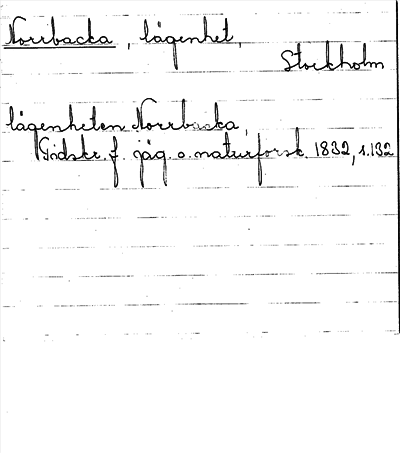 Norrbacka, lägenhet,
Stockholm
lägenheten Norrbacka,
Tidskr. f. jäg. o. naturforsk. 1832, s. 132